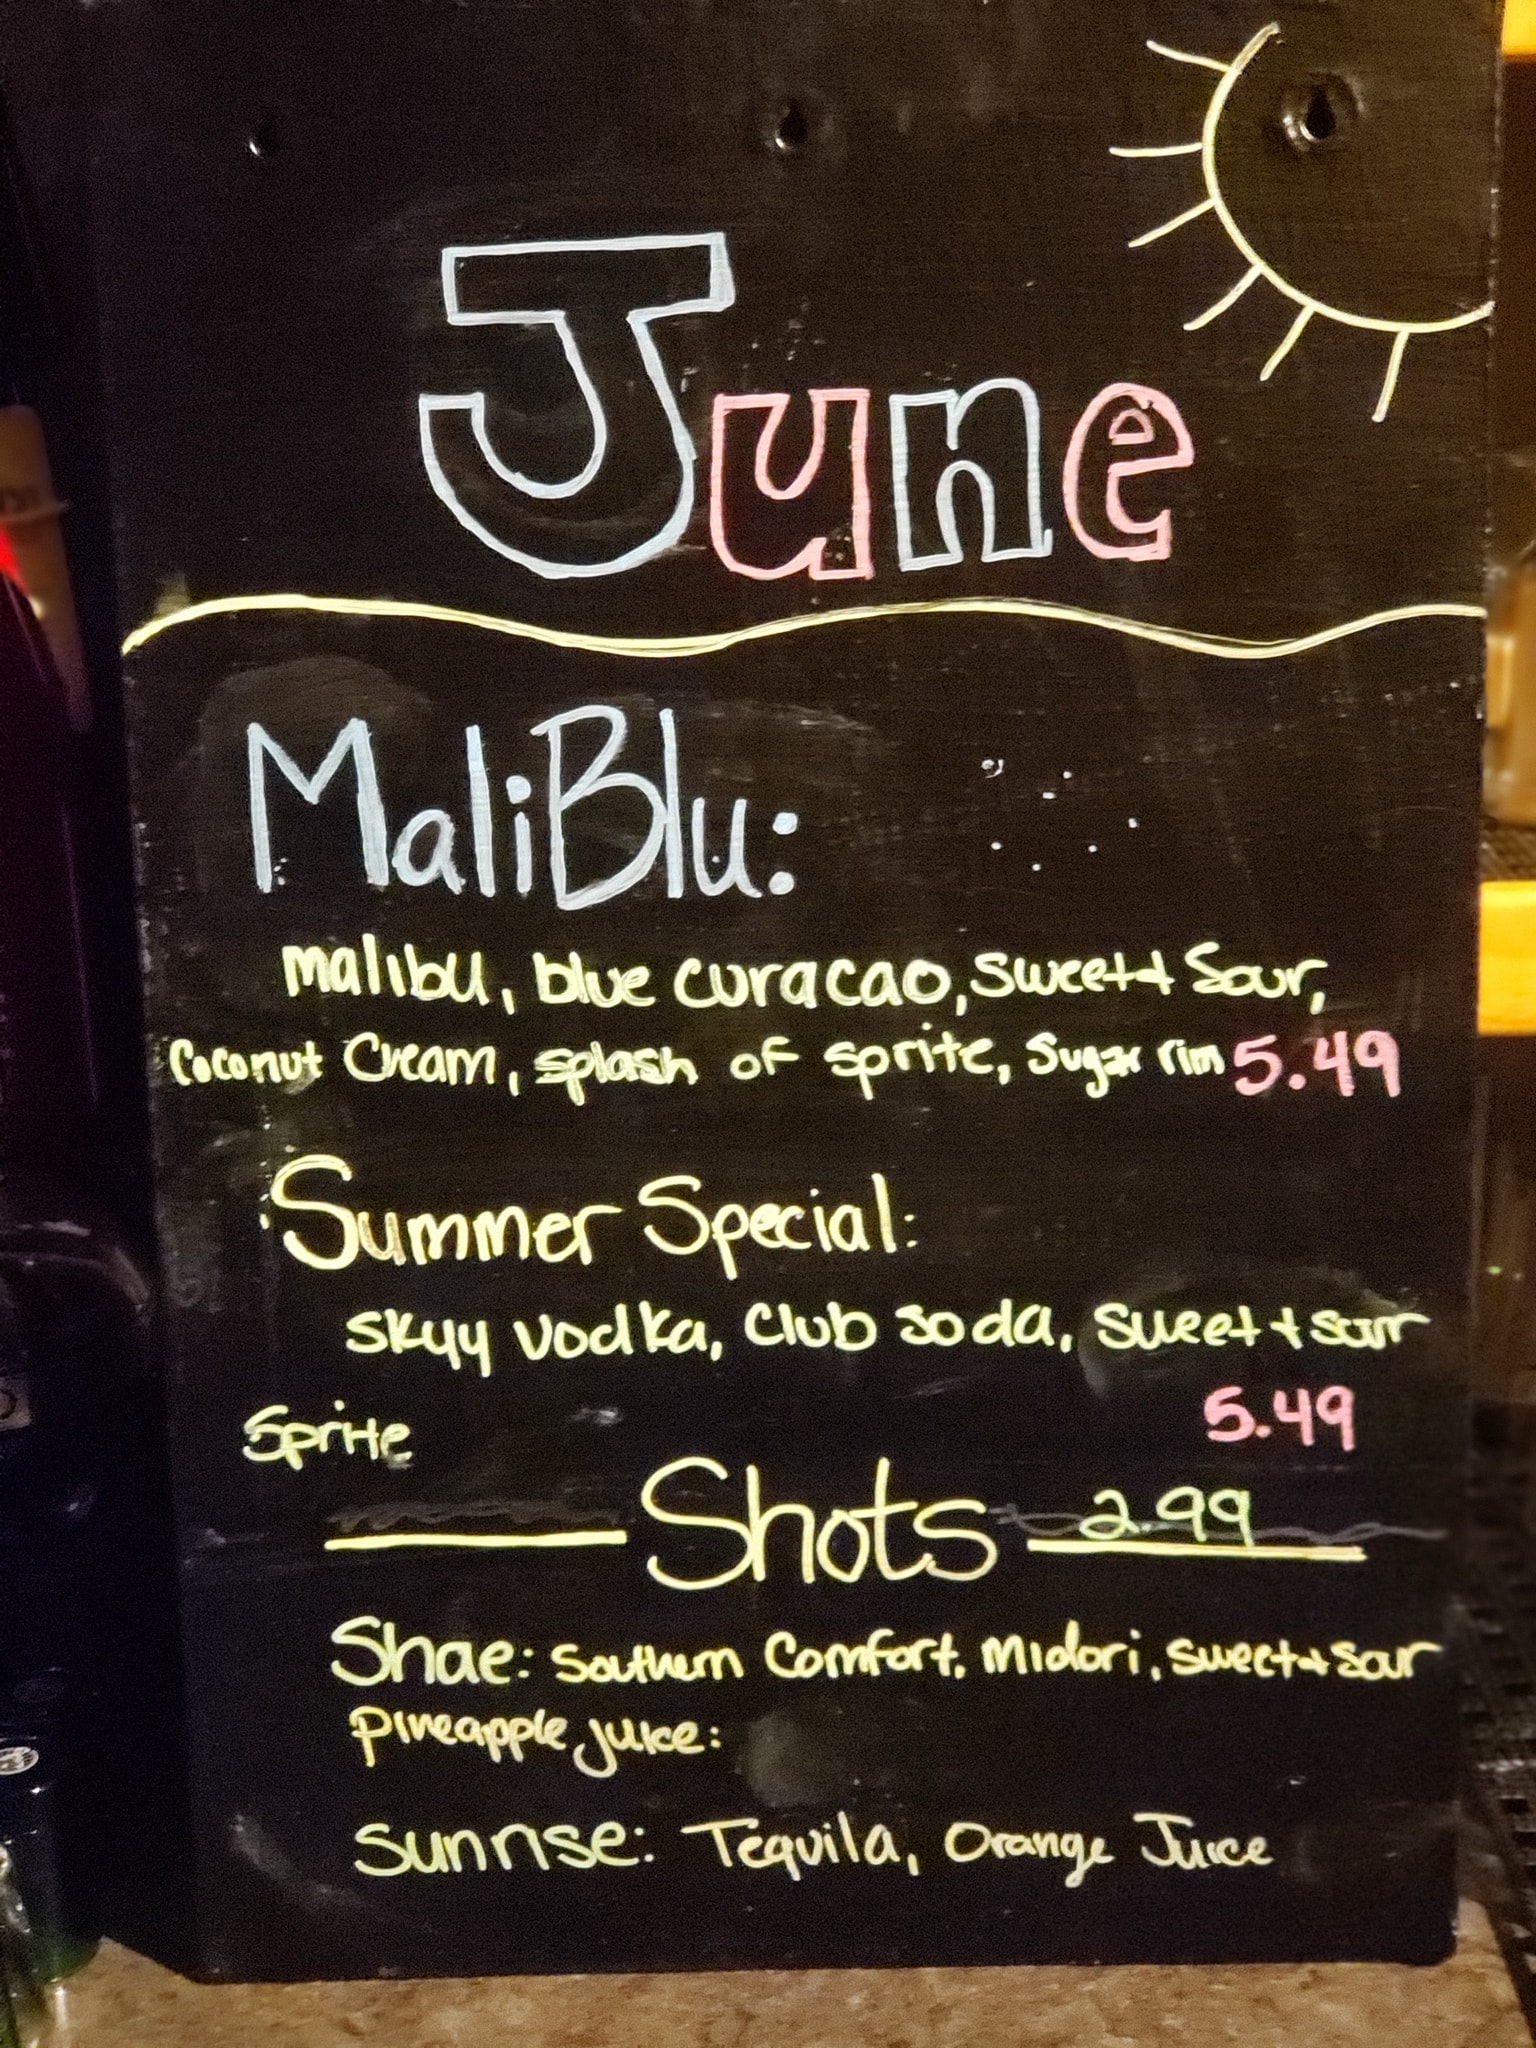 June
MaliBlu:
malibu, blue curacao, sweet + Sour,
Coconut Cream, splash of sprite, sugar rim 5.49
Summer Special:
skyy vodka, club soda, sweet + sour
Sprite 5.49
Shots 2.99
Shae: Southern Comfort, Midori, sweet + sour
pineapple juice:
sunrise: Tequila, Orange Juice